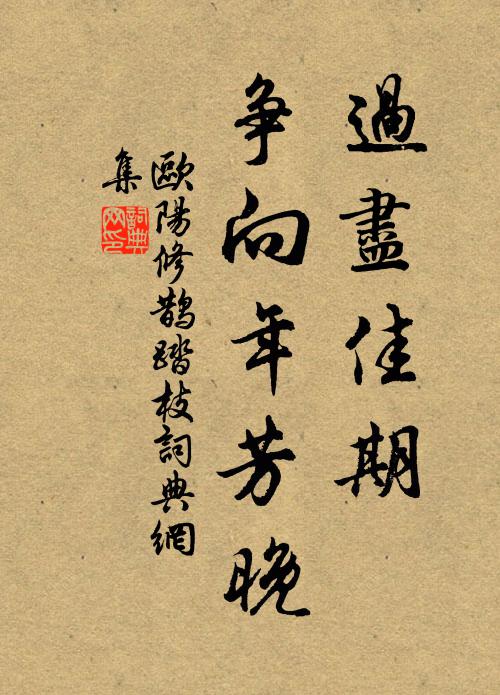 過盡佳期
爭向年芳晚
歐陽修鵲踏枝詞典網
集
詞典
网印